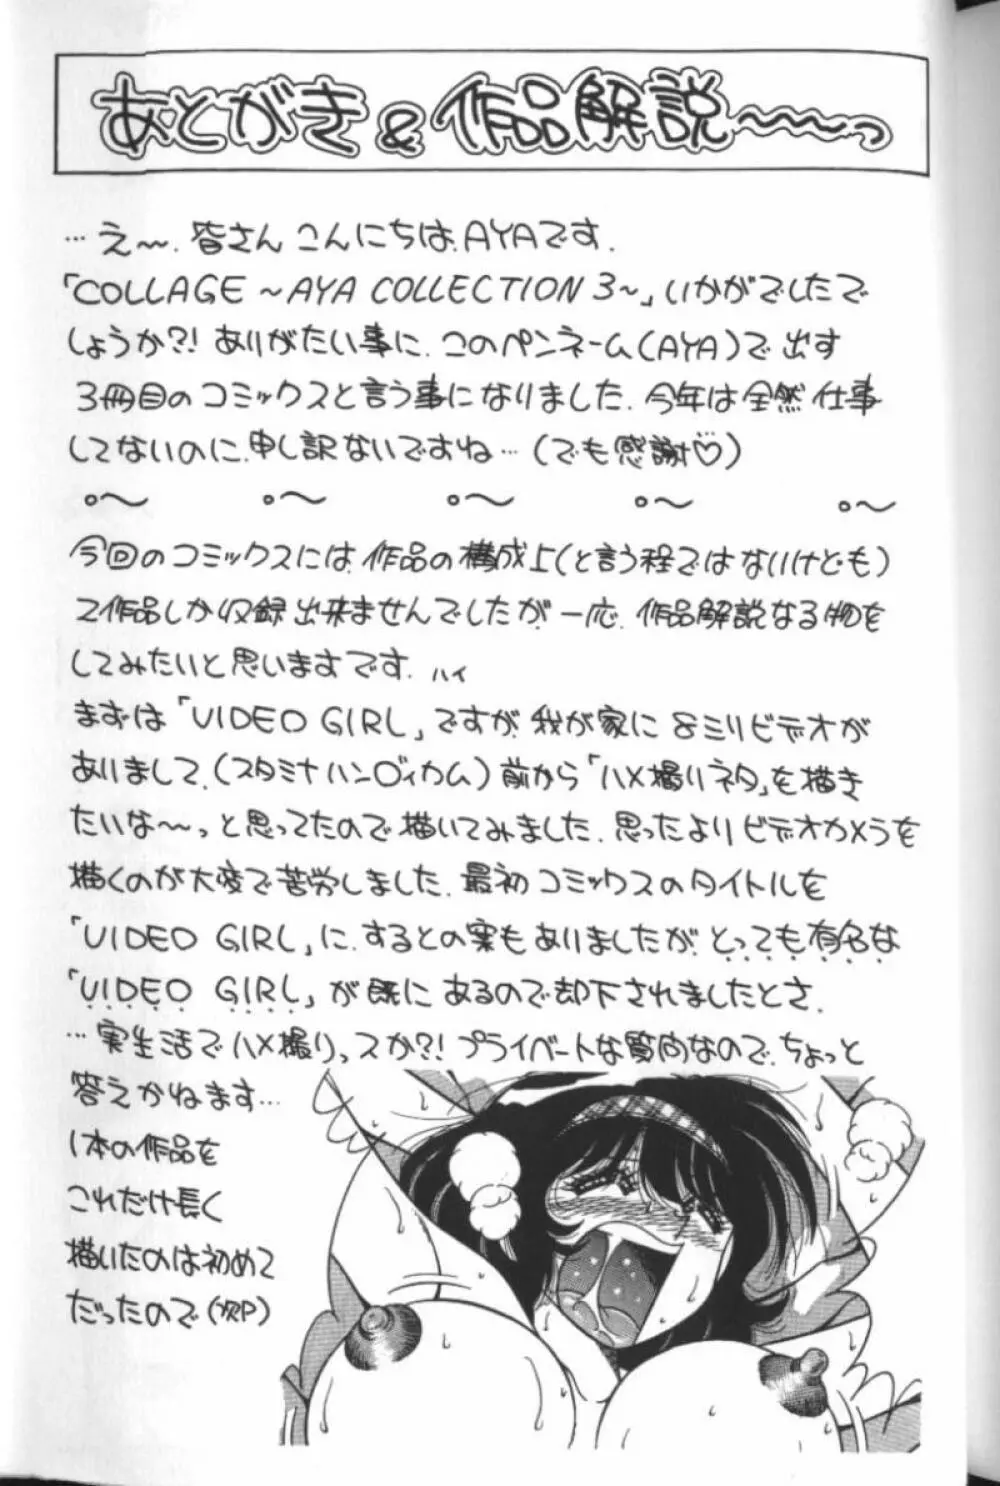 あとがき&作品解説〜〜〜っ
…え〜。皆さんこんにちは、AYAです。
「COLLAGE 〜AYA COLLECTION 3〜」いかがでしたで
しょうか?! ありがたい事に、このペンネーム(AYA)で出す
3冊目のコミックスと言う事になりました。今年は全然仕事
してないのに、申し訳ないですね…(でも感謝♡)
今回のコミックスには、作品の構成上(と言う程ではないけども)
2作品しか収録出来ませんでしたが、一応、作品解説なる物を
してみたいと思いますです。ハイ
まずは「VIDEO GIRL」ですが、我が家に8ミリビデオが
ありまして、(スタミナハンディカム)前から「ハメ撮りネタ」を描き
たいな〜っと思ってたので描いてみました。思ったよりビデオカメラを
描くのが大変で苦労しました。最初コミックスのタイトルを
「VIDEO GIRL」に、するとの案もありましたが、とっても有名な
「VIDEO GIRL」が既にあるので却下されましたとさ。
…実生活でハメ撮りっスか?! プライベートな質問なので、ちょっと
答えかねます…
1本の作品を
これだけ長く
描いたのは初めて
だったので(次P)